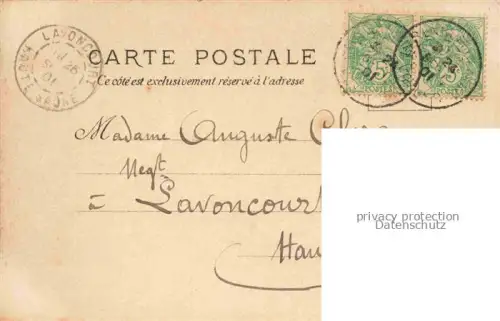 LAVONCOURT
HTE SAÔNE
CARTE POSTALE
Ce côté est exclusivement réservé à l'adresse
Madame Auguste
Negt
à Lavoncourt
Hau
privacy protection
Datenschutz